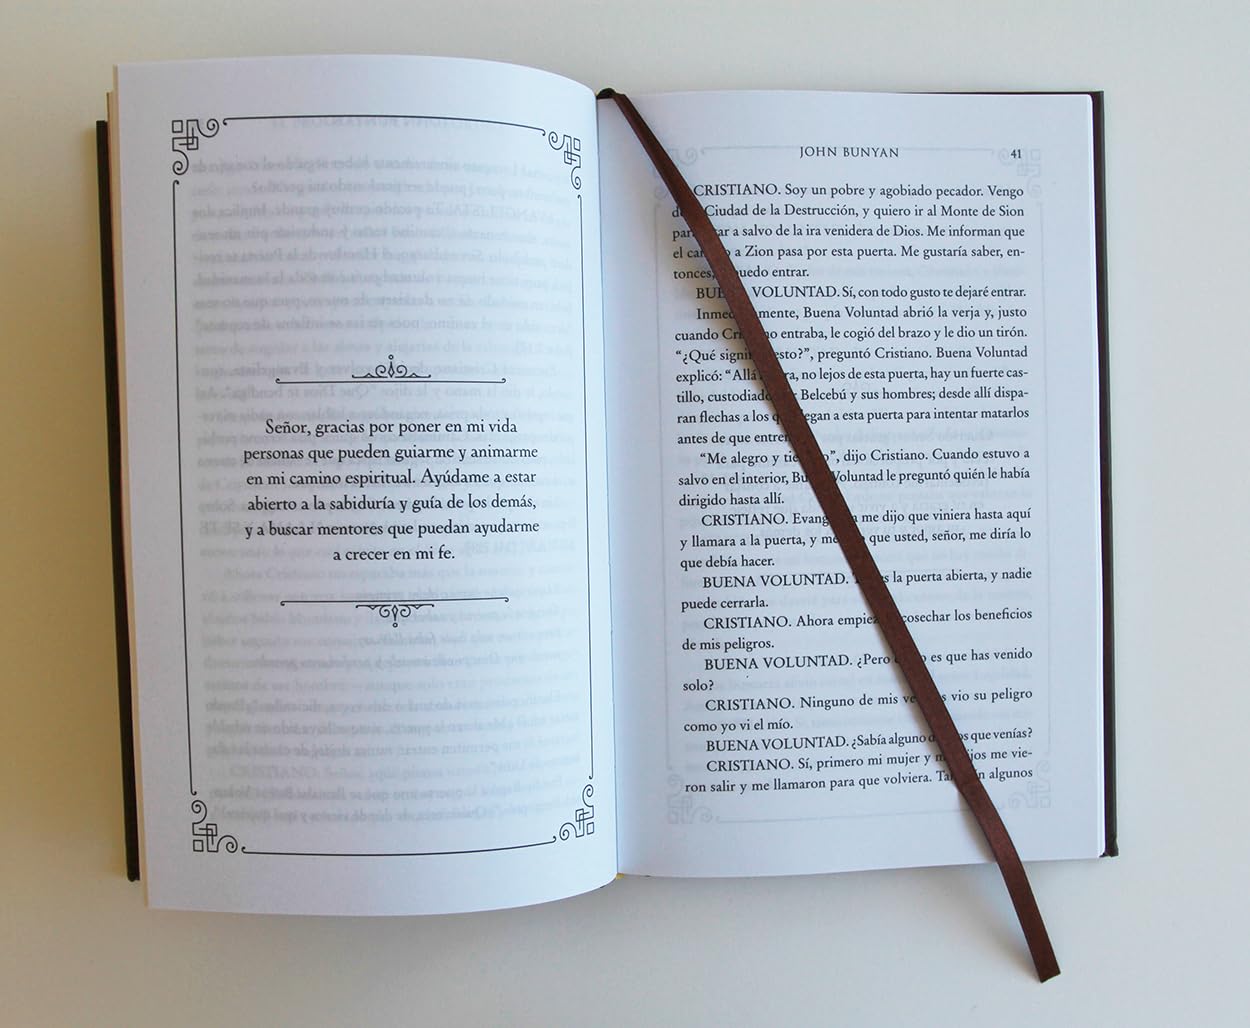 Señor, gracias por poner en mi vida
personas que pueden guiarme y animarme
en mi camino espiritual. Ayúdame a estar
abierto a la sabiduría y guía de los demás,
y a buscar mentores que puedan ayudarme
a crecer en mi fe.
JOHN BUNYAN 41
CRISTIANO. Soy un pobre y agobiado pecador. Vengo
Ciudad de la Destrucción, y quiero ir al Monte de Sion
a salvo de la ira venidera de Dios. Me informan que
el a Zion pasa por esta puerta. Me gustaría saber, en-
tonces, puedo entrar.
BUENA VOLUNTAD. Sí, con todo gusto te dejaré entrar.
Inmediatamente, Buena Voluntad abrió la verja y, justo
cuando Cristiano entraba, le cogió del brazo y le dio un tirón.
“¿Qué significa esto?”, preguntó Cristiano. Buena Voluntad
explicó: “Allá afuera, no lejos de esta puerta, hay un fuerte cas-
tillo, custodiado por Belcebú y sus hombres; desde allí dispa-
ran flechas a los que llegan a esta puerta para intentar matarlos
antes de que entren”.
“Me alegro y tiemblo”, dijo Cristiano. Cuando estuvo a
salvo en el interior, Buena Voluntad le preguntó quién le había
dirigido hasta allí.
CRISTIANO. Evangelista me dijo que viniera hasta aquí
y llamara a la puerta, y me dijo que usted, señor, me diría lo
que debía hacer.
BUENA VOLUNTAD. la puerta abierta, y nadie
puede cerrarla.
CRISTIANO. Ahora empiezo a cosechar los beneficios
de mis peligros.
BUENA VOLUNTAD. ¿Pero cómo es que has venido
solo?
CRISTIANO. Ninguno de mis vecinos vio su peligro
como yo vi el mío.
BUENA VOLUNTAD. ¿Sabía alguno de ellos que venías?
CRISTIANO. Sí, primero mi mujer y mis hijos me vie-
ron salir y me llamaron para que volviera. También algunos